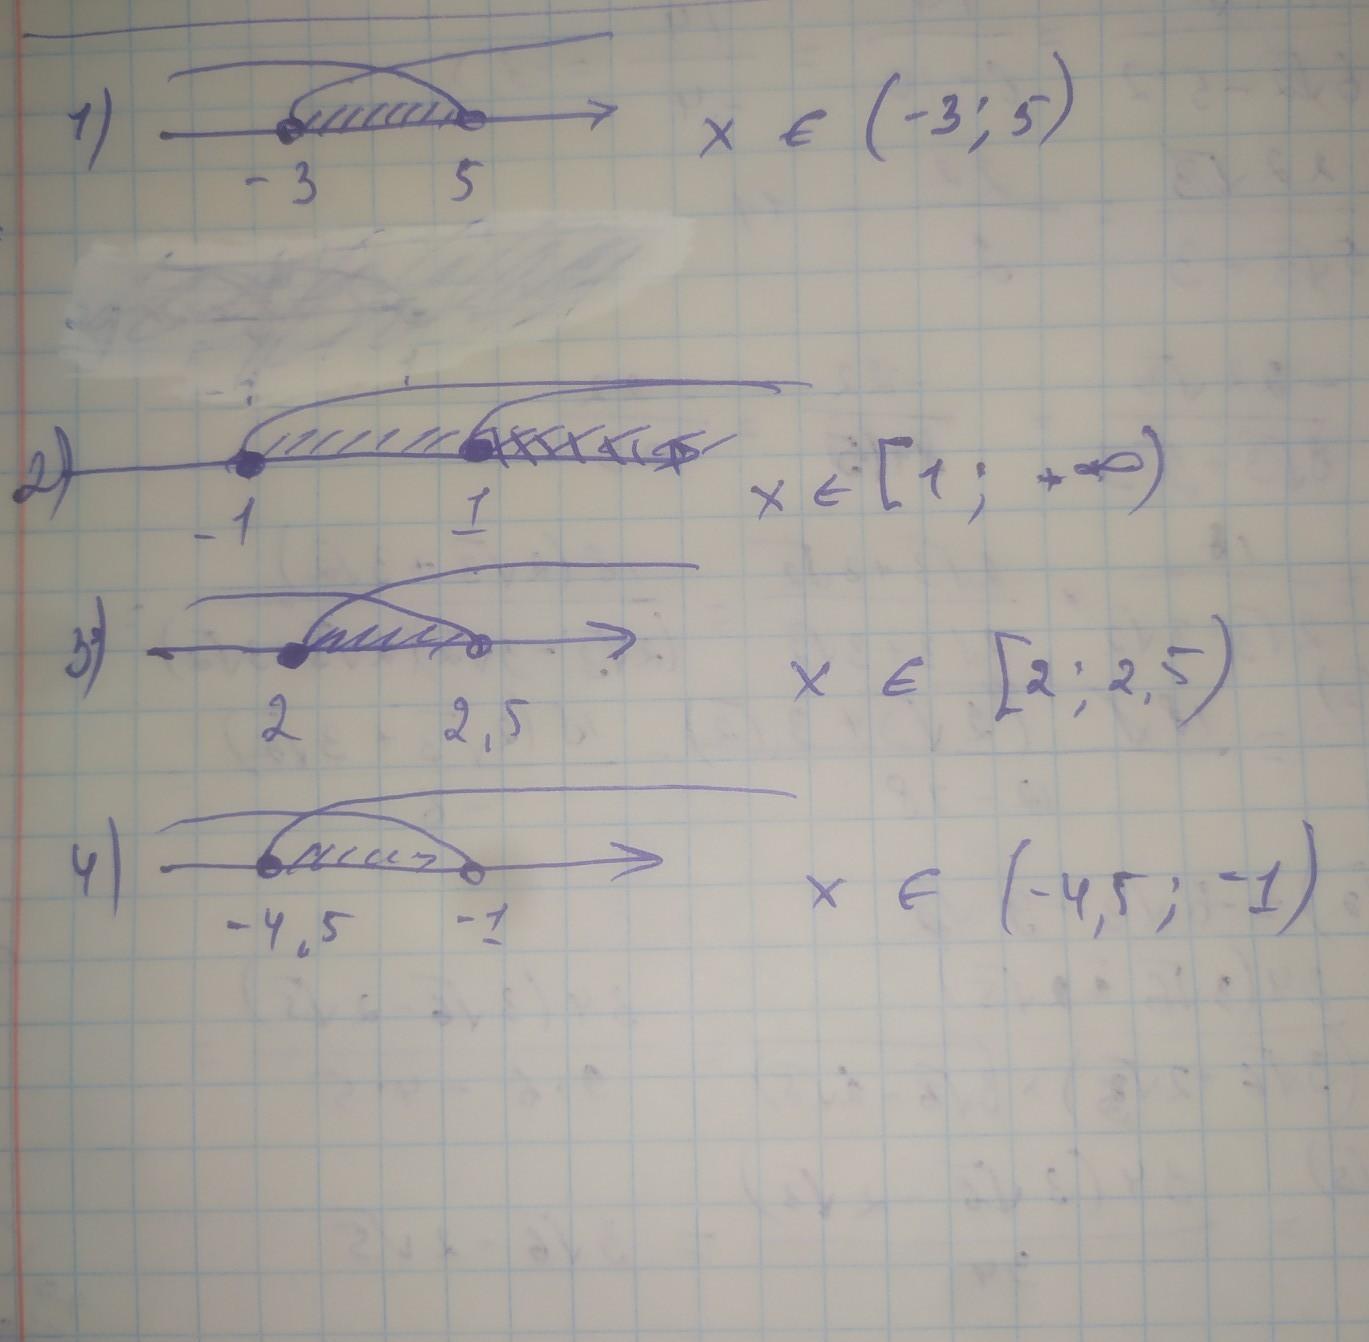 1) -3 5 x ∈ (-3; 5)
2) -1 1 x ∈ [1; +∞)
3) 2 2,5 x ∈ [2; 2,5)
4) -4,5 -1 x ∈ (-4,5; -1)